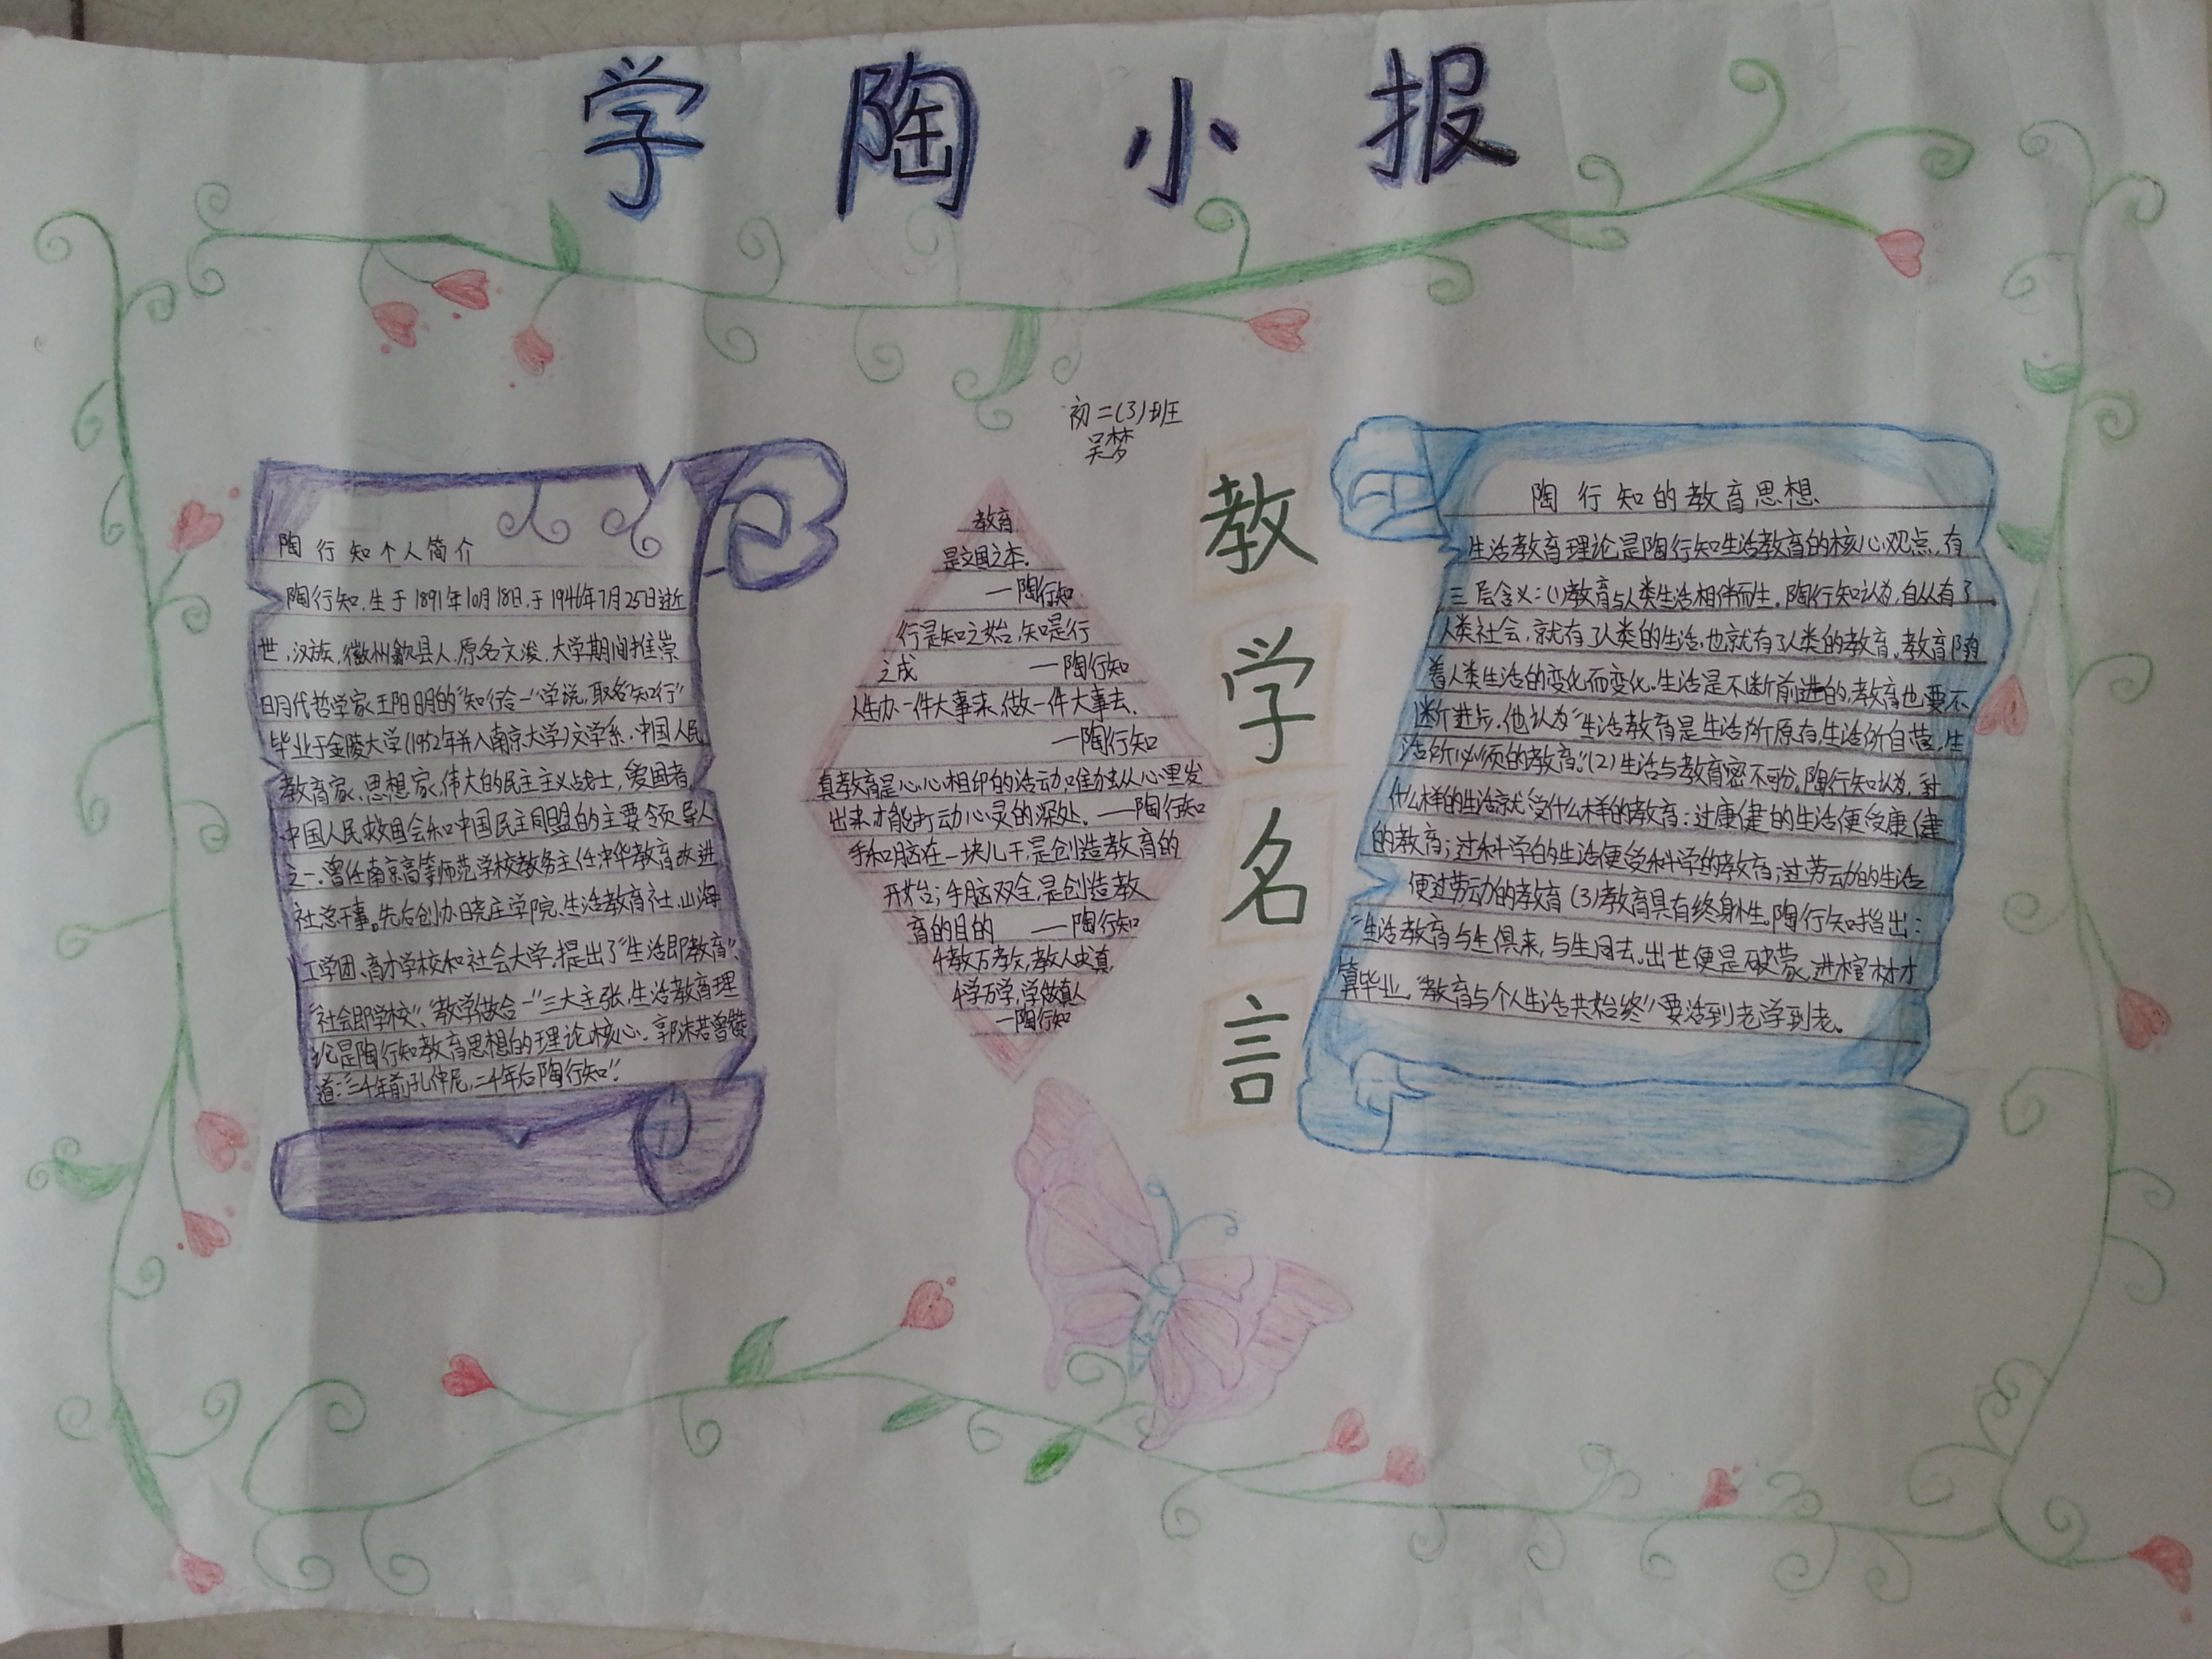 学陶小报
初二(3)班
吴梦
陶行知个人简介
陶行知,生于1891年10月18日,于1946年7月25日逝
世,汉族,徽州歙县人,原名文浚,大学期间推崇
明代哲学家王阳明的“知行合一”学说,取名“知行”
毕业于金陵大学(1952年并入南京大学)文学系.中国人民
教育家、思想家,伟大的民主主义战士,爱国者,
中国人民救国会和中国民主同盟的主要领导人
之一.曾任南京高等师范学校教务主任,中华教育改进
社总干事。先后创办晓庄学院、生活教育社、山海
工学团、育才学校和社会大学,提出了“生活即教育”、
“社会即学校”、“教学做合一”三大主张,生活教育理
论是陶行知教育思想的理论核心.郭沫若曾赞
道:“二千年前孔仲尼,二千年后陶行知”.
教育
是立国之本.
——陶行知
行是知之始,知是行
之成 ——陶行知
人生办一件大事来,做一件大事去.
——陶行知
真教育是心心相印的活动,唯独从心里发
出来才能打动心灵的深处. ——陶行知
手和脑在一块儿干,是创造教育的
开始;手脑双全,是创造教
育的目的 ——陶行知
千教万教,教人求真,
千学万学,学做真人
—陶行知
教学名言
陶行知的教育思想
生活教育理论是陶行知生活教育的核心观点,有
三层含义:(1)教育与人类生活相伴而生.陶行知认为,自从有了
人类社会,就有了人类的生活,也就有了人类的教育。教育随
着人类生活的变化而变化.生活是不断前进的,教育也要不
断进步.他认为“生活教育是生活所原有,生活所自营,生
活所必须的教育。”(2)生活与教育密不可分.陶行知认为,
什么样的生活就受什么样的教育:过康健的生活便受康健
的教育;过科学的生活便受科学的教育;过劳动的生活
便过劳动的教育(3)教育具有终身性。陶行知指出:
“生活教育与生俱来,与生同去。出世便是破蒙,进棺材才
算毕业。“教育与个人生活共始终”要活到老学到老。